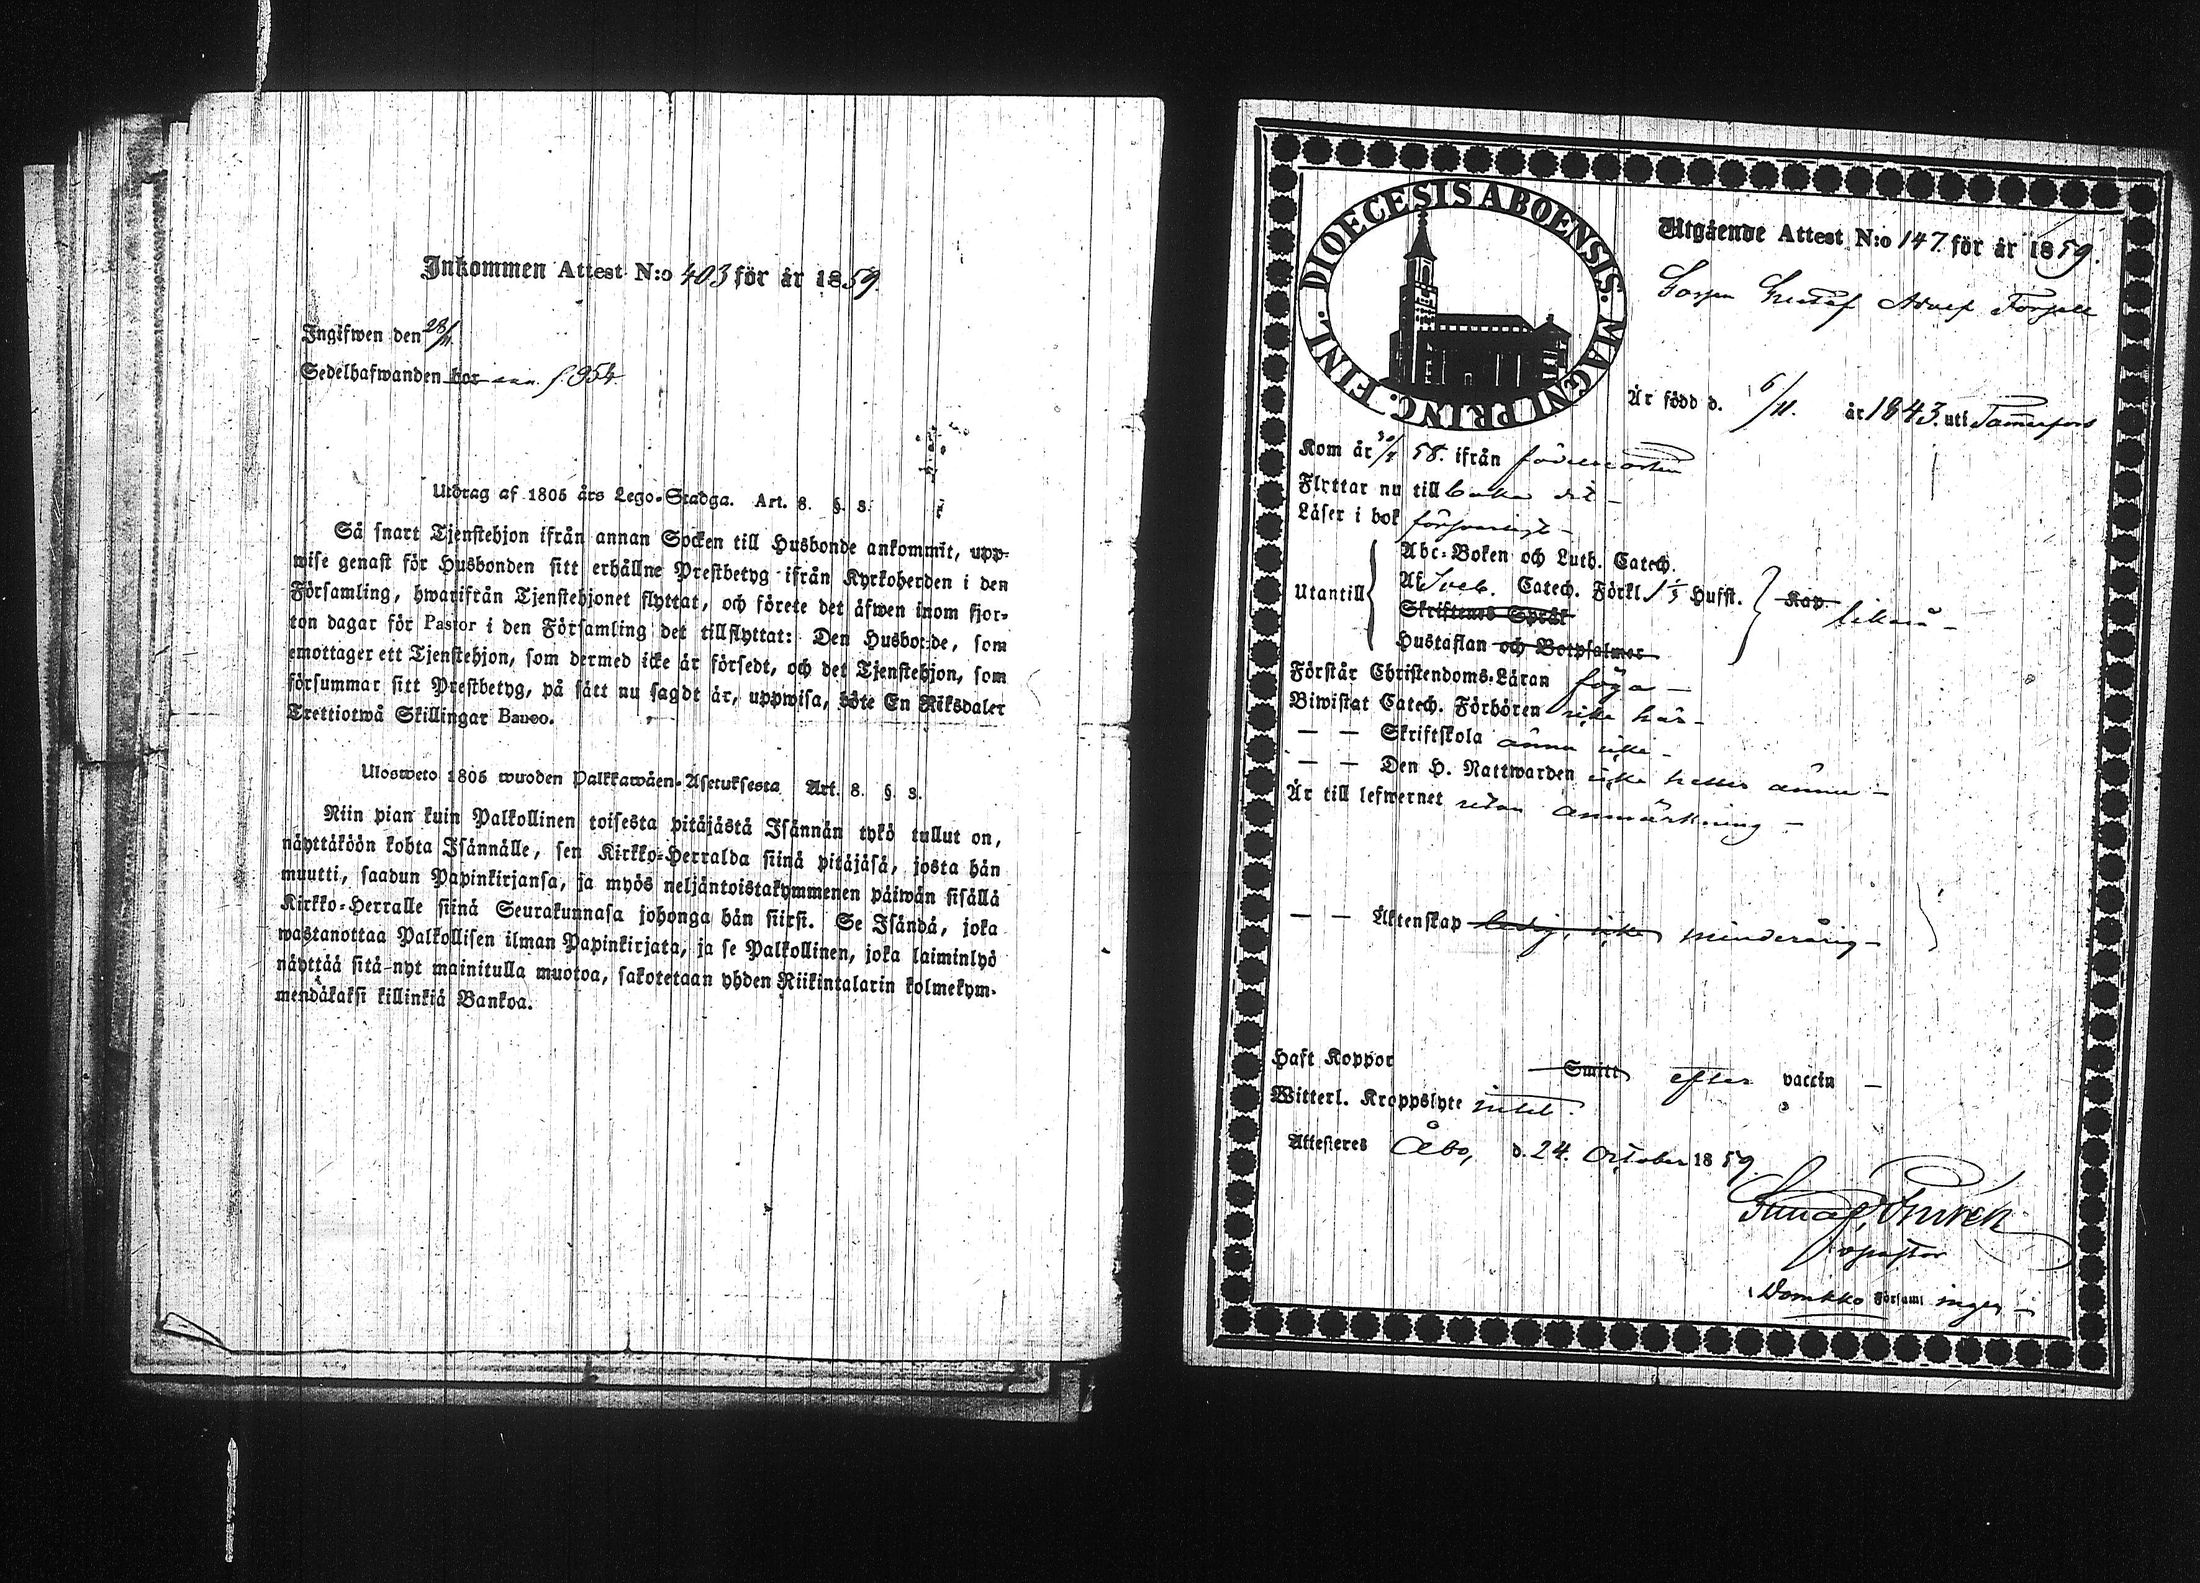 Inkommen Attest N:o 403 för år 1859.
Ingifwen den 28/11.
Sedelhafwanden bor p. 954.
Utdrag af 1805 års Lego-Stadga. Art. 8. §. 3.
Så snart Tjenstehjon ifrån annan Socken till Husbonde ankommit, upp-
wise genast för Husbonden sitt erhållne Prestbetyg ifrån Kyrkoherden i den
Församling, hwarifrån Tjenstehjonet flyttat, och förete det äfwen inom fjor-
ton dagar för Pastor i den Församling det tillflyttat: Den Husbonde, som
emottager ett Tjenstehjon, som dermed icke är försedt, och det Tjenstehjon, som
försummar sitt Prestbetyg, på sätt nu sagdt är, uppwisa, böte En Riksdaler
Trettiotwå Skillingar Banco.
Ulosweto 1805 wuoden Palkkawäen-Asetuksesta Art. 8. §. 3.
Niin pian kuin Palkollinen toisesta pitäjästä Isännän tykö tullut on,
näyttäköön kohta Isännälle, sen Kirkko-Herralda siinä pitäjäsä, josta hän
muutti, saadun Papinkirjansa, ja myös neljäntoistakymmenen päiwän sisällä
Kirkko-Herralle siinä Seurakunnasa johonga hän siirsi. Se Isändä, joka
wastanottaa Palkollisen ilman Papinkirjata, ja se Palkollinen, joka laiminlyö
näyttää sitä nyt mainitulla muotoa, sakotetaan yhden Riikintalarin kolmekym-
mendäkaksi killinkiä Bankoa.
DIOECESIS ABOENSIS. MAGNI PRINC. FINL.
Utgående Attest N:o 147 för år 1859.
Gossen Gustaf Adolf Forsell
Är född d. 6/11. år 1843. uti Tammerfors
Kom år 58. ifrån födelseorten
Flyttar nu till baka dit –
Läser i bok försvarligt –
Utantill
Abc-Boken och Luth. Catech.
Af Sveb. Catech. Förkl. 1 1/2 Hufst. Kap. likaså –
Skriftenes Språk
Hustaflan och Botpsalmer
Förstår Christendoms-Läran föga –
Biwistat Catech. Förhören icke här –
– – Skriftskola ännu icke –
– – Den H. Nattwarden icke heller ännu –
Är till lefwernet utan anmärkning –
– – Äktenskap ledig, icke minderårig –
Haft Koppor Smitt efter vaccin –
Witterl. Kroppslyte intet.
Attesteras Åbo, d. 24. October 1859.
Domkko Församl ingen –